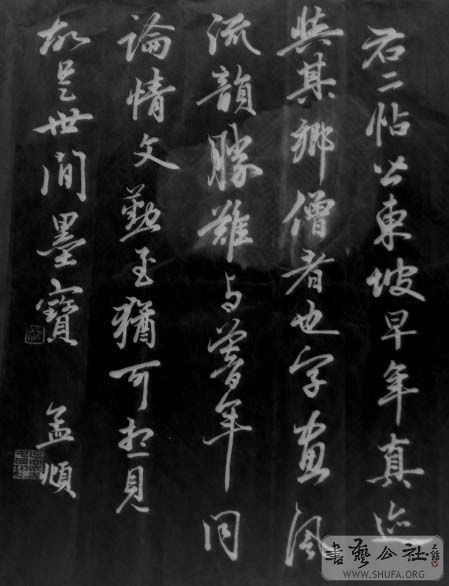 右二帖公東坡早年真迹
與其鄉僧者也字畫風
流韻勝難与暮年同
論情文勤至猶可想見
故是世間墨寶 孟頫
書藝公社
WWW.SHUFA.ORG